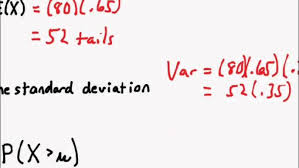 E(X) = (80)(.65)
= 52 tails
Var = (80)(.65)(
= 52(.35)
he standard deviation
P(X>μ)